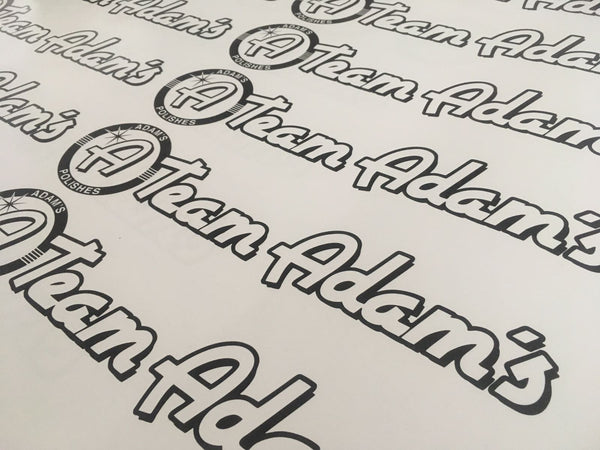 Adam's
Adam's
Team Adam
ADAM'S
POLISHES
A
Team Adam
ADAM'S
POLISHES
A
Team Adam's
ADAM'S
POLISHES
A
Team Adam's
ADAM'S
A
Team Ad